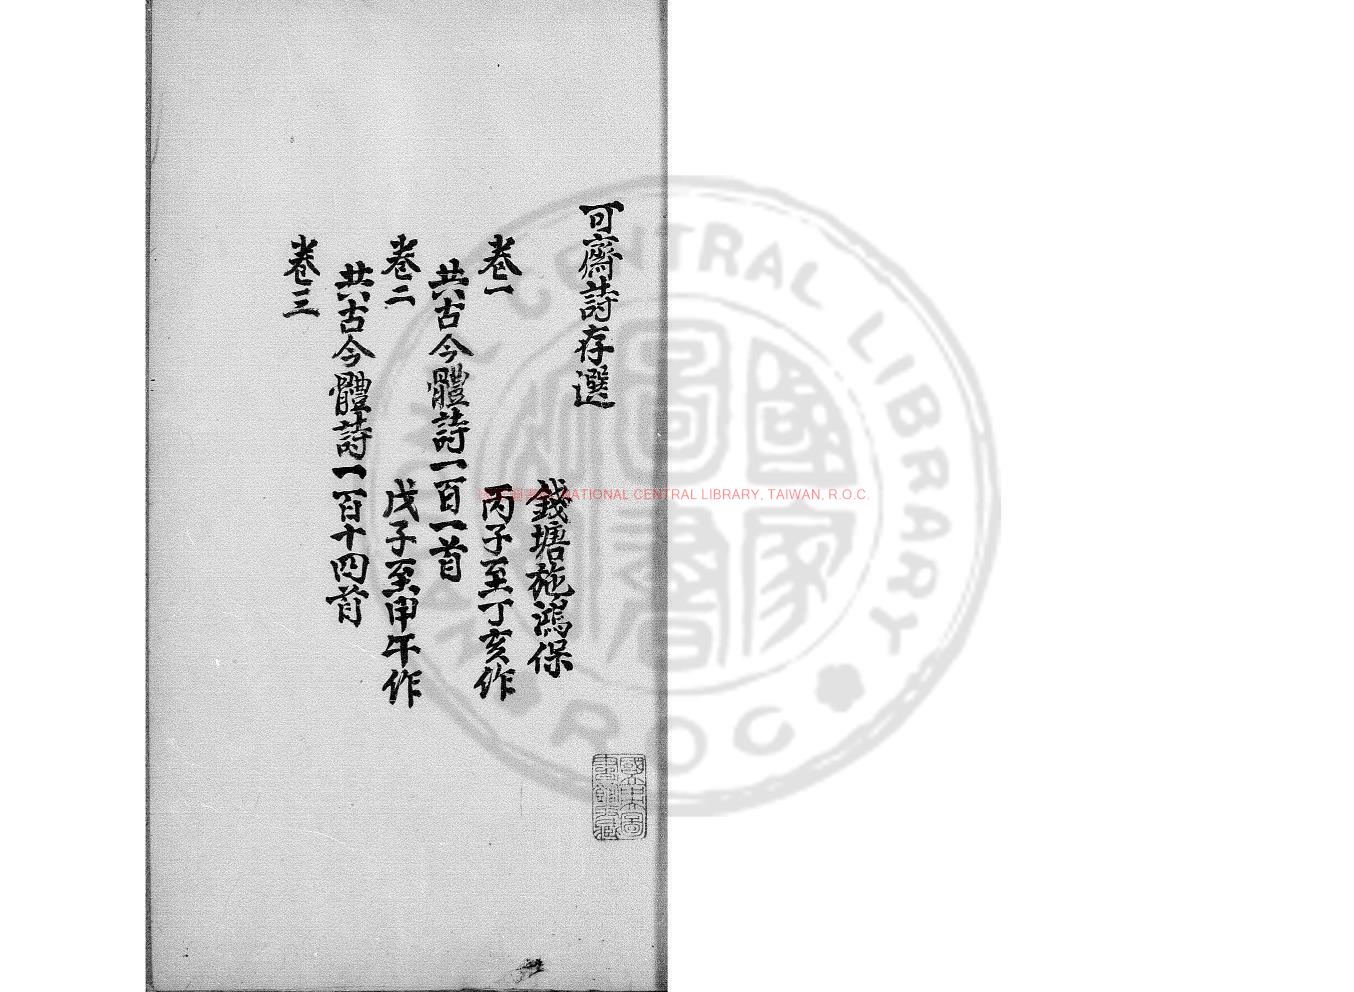 可齋詩存選
錢塘施鴻保
卷一　丙子至丁亥作
共古今體詩一百一首
卷二　戊子至甲午作
共古今體詩一百十四首
卷三
國立中央圖
書館收藏
NATIONAL CENTRAL LIBRARY, TAIWAN, R.O.C.
CENTRAL LIBRARY
R O C
國家
圖書